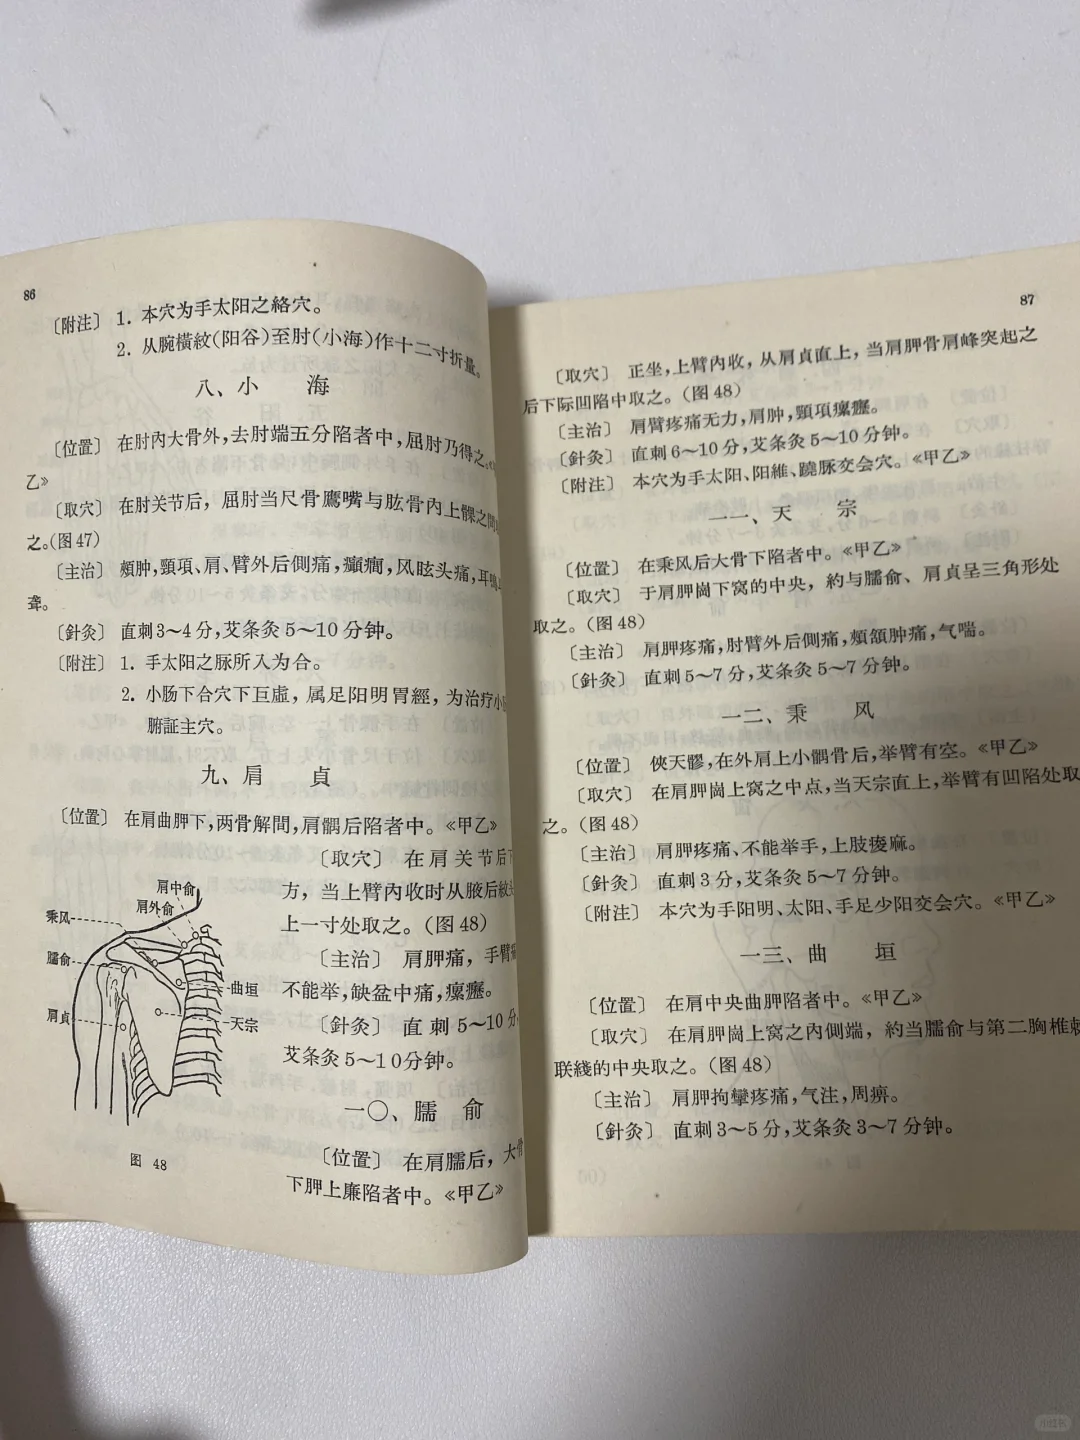 86
〔附注〕 1. 本穴为手太阳之絡穴。
2. 从腕橫紋(阳谷)至肘(小海)作十二寸折量。
八、小　海
〔位置〕 在肘內大骨外，去肘端五分陷者中，屈肘乃得之。《甲
乙》
〔取穴〕 在肘关节后，屈肘当尺骨鹰嘴与肱骨內上髁之間
之。(图47)
〔主治〕 頰肿，頸項、肩、臂外后側痛，癲癇，风眩头痛，耳鳴
聋。
〔針灸〕 直刺3～4分，艾条灸5～10分钟。
〔附注〕 1. 手太阳之脉所入为合。
2. 小肠下合穴下巨虛，属足阳明胃經，为治疗小
腑証主穴。
九、肩　貞
〔位置〕 在肩曲胛下，两骨解間，肩髃后陷者中。《甲乙》
〔取穴〕 在肩关节后下
方，当上臂內收时从腋后紋头
上一寸处取之。(图48)
〔主治〕 肩胛痛，手臂
不能举，缺盆中痛，瘰癧。
〔針灸〕 直刺5～10分
艾条灸5～10分钟。
肩中俞
肩外俞
乘风
臑俞
肩貞
曲垣
天宗
图 48
一〇、臑　俞
〔位置〕 在肩臑后，大骨
下胛上廉陷者中。《甲乙》
87
〔取穴〕 正坐，上臂內收，从肩貞直上，当肩胛骨肩峰突起之
后下际凹陷中取之。(图48)
〔主治〕 肩臂疼痛无力，肩肿，頸項瘰癧。
〔針灸〕 直刺6～10分，艾条灸5～10分钟。
〔附注〕 本穴为手太阳、阳維、蹺脉交会穴。《甲乙》
一一、天　宗
〔位置〕 在乘风后大骨下陷者中。《甲乙》
〔取穴〕 于肩胛崗下窝的中央，約与臑俞、肩貞呈三角形处
取之。(图48)
〔主治〕 肩胛疼痛，肘臂外后側痛，頰頷肿痛，气喘。
〔針灸〕 直刺5～7分，艾条灸5～7分钟。
一二、秉　风
〔位置〕 俠天髎，在外肩上小髃骨后，举臂有空。《甲乙》
〔取穴〕 在肩胛崗上窝之中点，当天宗直上，举臂有凹陷处取
之。(图48)
〔主治〕 肩胛疼痛、不能举手，上肢痠麻。
〔針灸〕 直刺3分，艾条灸5～7分钟。
〔附注〕 本穴为手阳明、太阳、手足少阳交会穴。《甲乙》
一三、曲　垣
〔位置〕 在肩中央曲胛陷者中。《甲乙》
〔取穴〕 在肩胛崗上窝之內側端，約当臑俞与第二胸椎棘
联綫的中央取之。(图48)
〔主治〕 肩胛拘攣疼痛，气注，周痹。
〔針灸〕 直刺3～5分，艾条灸3～7分钟。
小红书